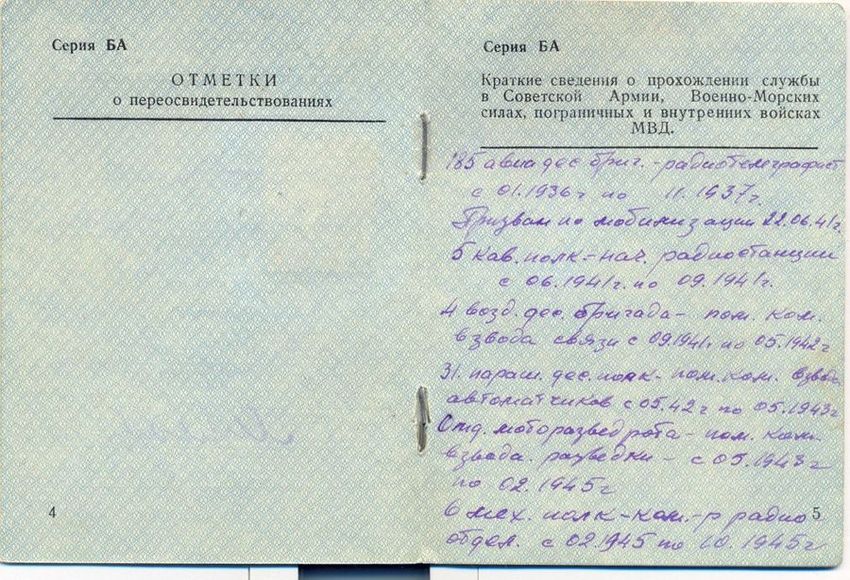 Серия БА
ОТМЕТКИ
о переосвидетельствованиях
4
Серия БА
Краткие сведения о прохождении службы
в Советской Армии, Военно-Морских
силах, пограничных и внутренних войсках
МВД.
185 авиа дес. бриг. - радиотелеграфист
с 01.1936г по 11.1937г.
Призван по мобилизации 22.06.41г.
5 кав. полк - нач. радиостанции
с 06.1941г. по 09.1941г.
4 возд. дес. бригада - пом. ком.
взвода связи с 09.1941г по 05.1942г
31. параш. дес. полк - пом. ком. взвода
автоматчиков с 05.42г по 05.1943г
Отд. моторазведрота - пом. ком.
взвода. разведки - с 05.1943г
по 02.1945г
6 мех. полк - ком-р радио
отдел. с 02.1945 по 10.1945г
5